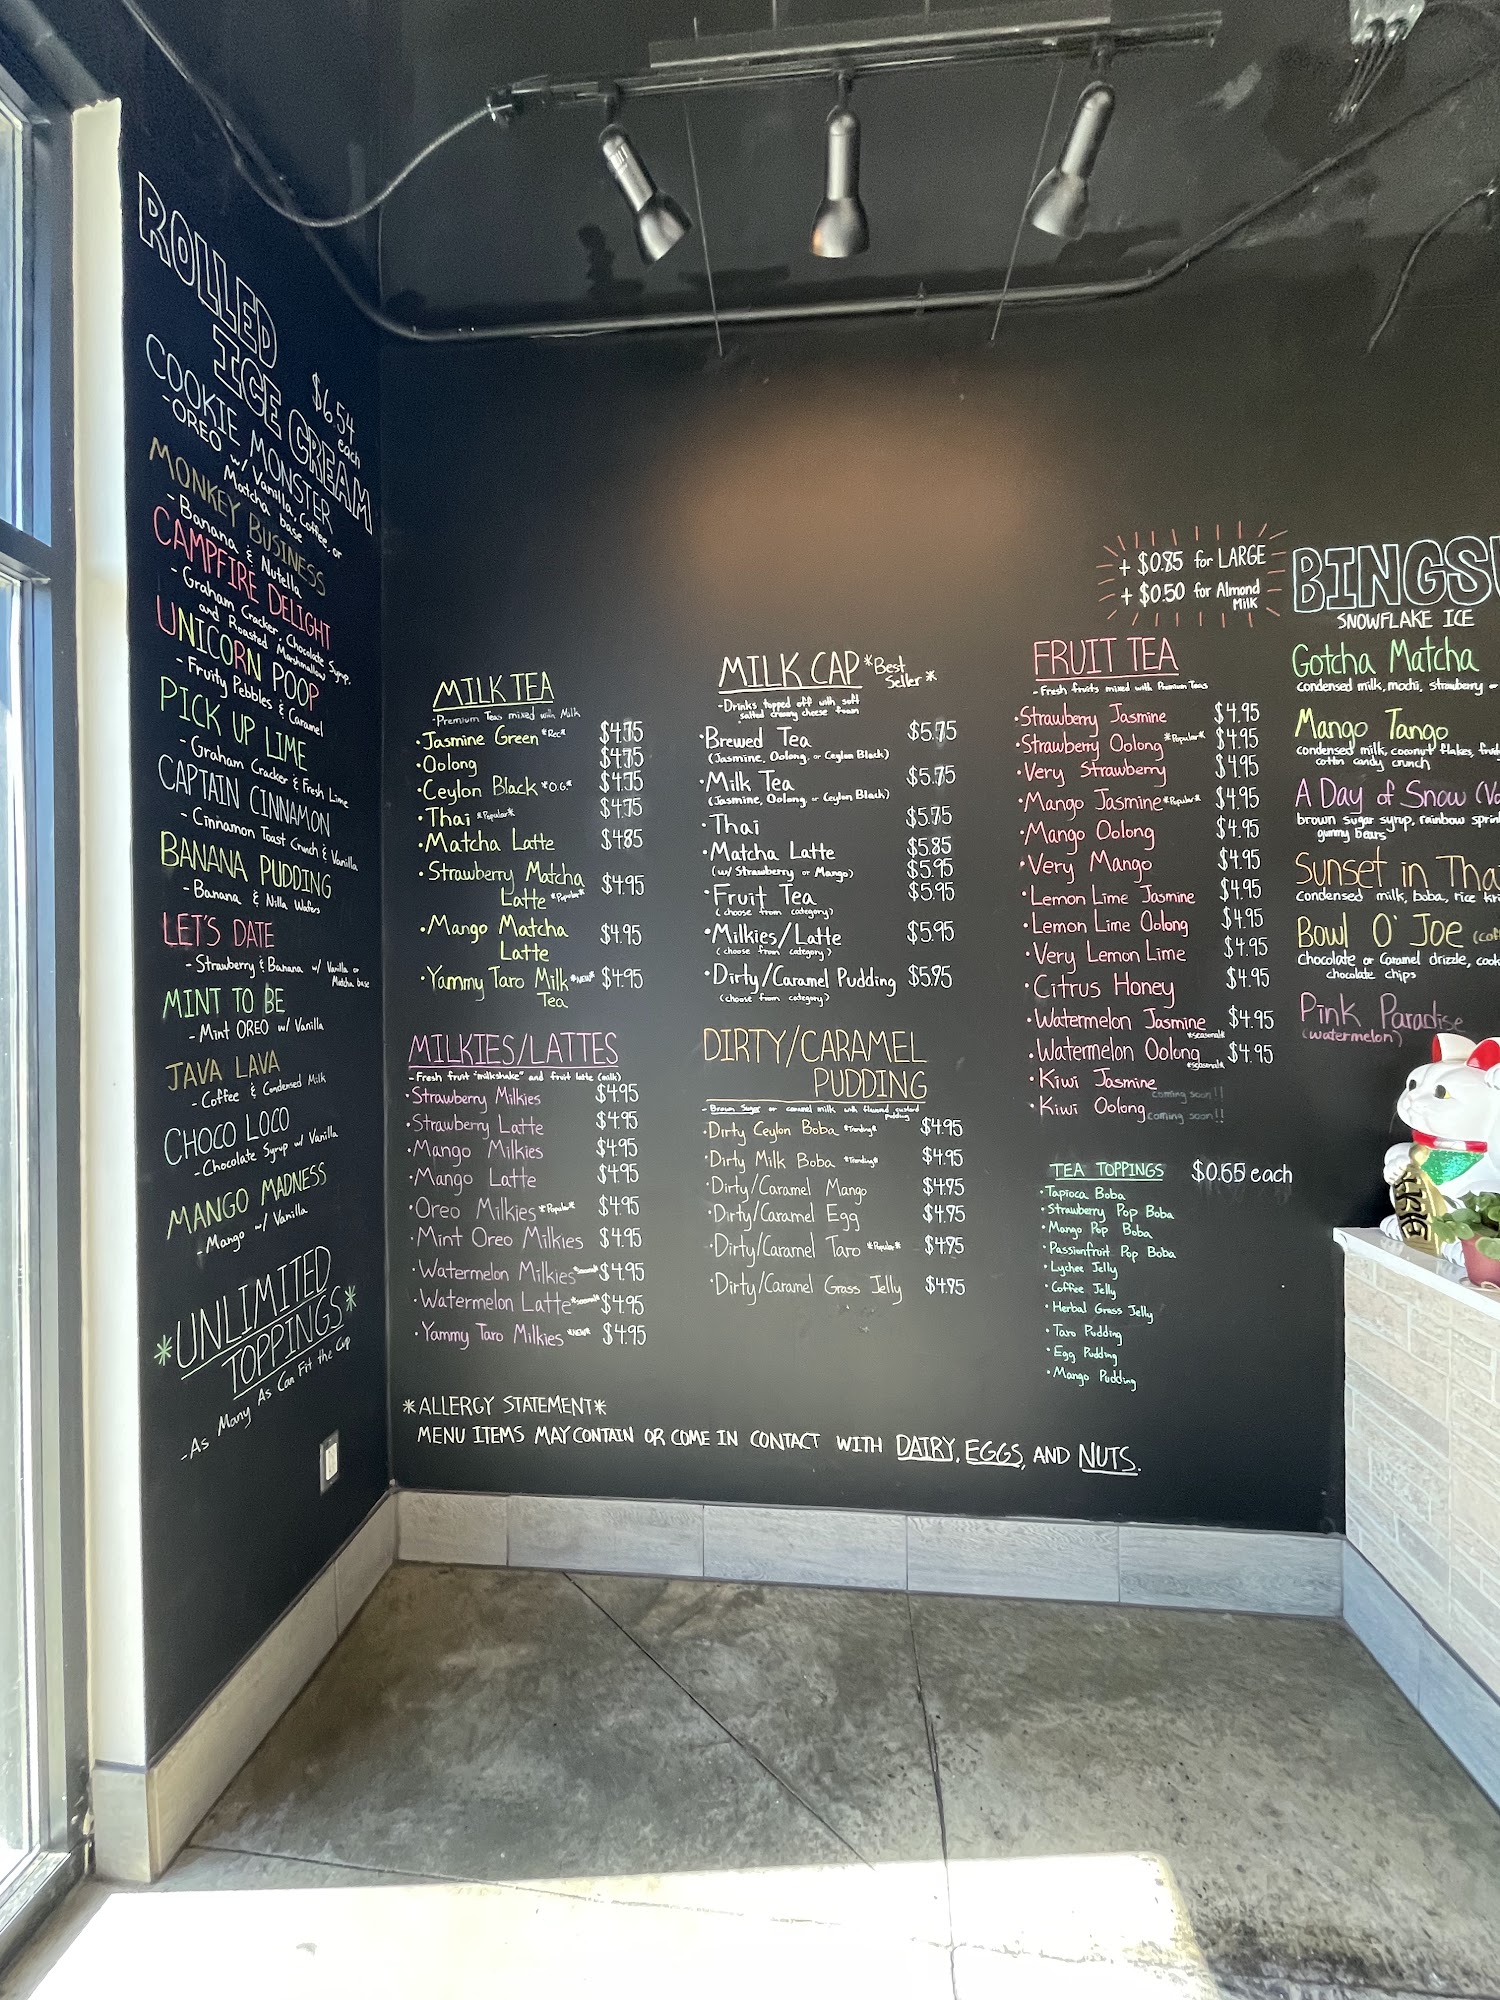 ROLLED
ICE CREAM
$6.54
each
COOKIE MONSTER
-OREO w/ Vanilla, Coffee, or
Matcha base
MONKEY BUSINESS
- Banana & Nutella
CAMPFIRE DELIGHT
- Graham Cracker, Chocolate Syrup,
and Roasted Marshmallow
UNICORN POOP
- Fruity Pebbles & Caramel
PICK UP LIME
- Graham Cracker & Fresh Lime
CAPTAIN CINNAMON
- Cinnamon Toast Crunch & Vanilla
BANANA PUDDING
- Banana & Nilla Wafers
LET'S DATE
- Strawberry & Banana w/ Vanilla or
Matcha base
MINT TO BE
- Mint OREO w/ Vanilla
JAVA LAVA
- Coffee & Condensed Milk
CHOCO LOCO
- Chocolate Syrup w/ Vanilla
MANGO MADNESS
- Mango w/ Vanilla
*UNLIMITED
TOPPINGS*
-As Many As Can Fit the Cup
MILK TEA
-Premium Teas mixed with Milk
·Jasmine Green *Rec* $4.75
·Oolong $4.75
·Ceylon Black *O.G.* $4.75
·Thai *Popular* $4.75
·Matcha Latte $4.85
·Strawberry Matcha
Latte *Popular* $4.95
·Mango Matcha
Latte $4.95
·Yammy Taro Milk *NEW* $4.95
Tea
MILKIES/LATTES
-Fresh fruit "milkshake" and fruit latte (milk)
·Strawberry Milkies $4.95
·Strawberry Latte $4.95
·Mango Milkies $4.95
·Mango Latte $4.95
·Oreo Milkies *Popular* $4.95
·Mint Oreo Milkies $4.95
·Watermelon Milkies $4.95
·Watermelon Latte *seasonal* $4.95
·Yammy Taro Milkies *NEW* $4.95
MILK CAP *Best
Seller*
-Drinks topped off with soft
salted creamy cheese foam
·Brewed Tea $5.75
(Jasmine, Oolong, or Ceylon Black)
·Milk Tea $5.75
(Jasmine, Oolong, or Ceylon Black)
·Thai $5.75
·Matcha Latte $5.85
(w/ Strawberry or Mango) $5.95
·Fruit Tea $5.95
(choose from category)
·Milkies/Latte $5.95
(choose from category)
·Dirty/Caramel Pudding $5.95
(choose from category)
DIRTY/CARAMEL
PUDDING
- Brown Sugar or caramel milk with flavored custard
pudding
·Dirty Ceylon Boba *Trending* $4.95
·Dirty Milk Boba *Trending* $4.95
·Dirty/Caramel Mango $4.95
·Dirty/Caramel Egg $4.95
·Dirty/Caramel Taro *Popular* $4.95
·Dirty/Caramel Grass Jelly $4.95
+ $0.85 for LARGE
+ $0.50 for Almond
Milk
FRUIT TEA
- Fresh fruits mixed with Premium Teas
·Strawberry Jasmine $4.95
·Strawberry Oolong *Popular* $4.95
·Very Strawberry $4.95
·Mango Jasmine *Popular* $4.95
·Mango Oolong $4.95
·Very Mango $4.95
·Lemon Lime Jasmine $4.95
·Lemon Lime Oolong $4.95
·Very Lemon Lime $4.95
·Citrus Honey $4.95
·Watermelon Jasmine $4.95
*seasonal*
·Watermelon Oolong $4.95
*seasonal*
·Kiwi Jasmine coming soon!!
·Kiwi Oolong coming soon!!
TEA TOPPINGS $0.65 each
·Tapioca Boba
·Strawberry Pop Boba
·Mango Pop Boba
·Passionfruit Pop Boba
·Lychee Jelly
·Coffee Jelly
·Herbal Grass Jelly
·Taro Pudding
·Egg Pudding
·Mango Pudding
BINGSU
SNOWFLAKE ICE
Gotcha Matcha
condensed milk, mochi, strawberry
Mango Tango
condensed milk, coconut flakes,
cotton candy crunch
A Day of Snow
brown sugar syrup, rainbow
gummy bears
Sunset in
condensed milk, boba, rice
Bowl O' Joe
chocolate or Caramel drizzle,
chocolate chips
Pink Paradise
(watermelon)
*ALLERGY STATEMENT*
MENU ITEMS MAY CONTAIN OR COME IN CONTACT WITH DAIRY, EGGS, AND NUTS.